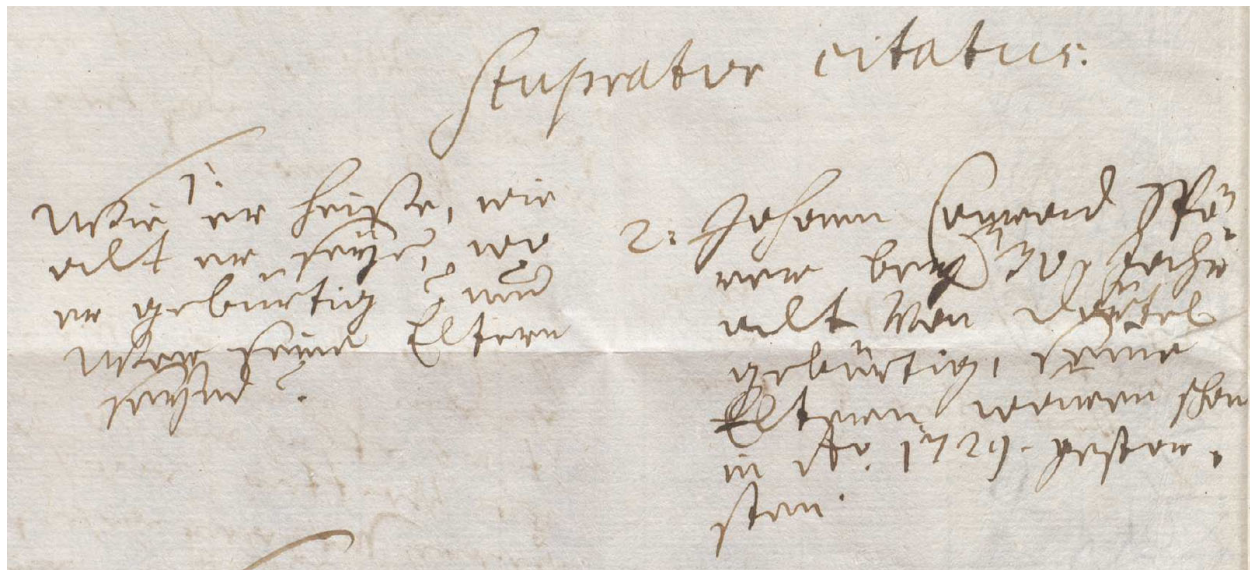 Stuprator citatus.
1.
Wie er heiße, wie
alt er seye, wo
er gebürtig? und
Wer seine Eltern
seynd?
2: Johann Conrad
30, Jahr
alt Von
gebürtig, seine
Eltern wären schon
in Ao. 1729. gestor,